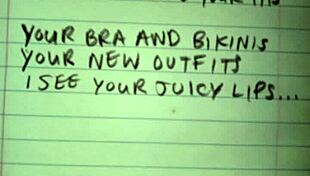 YOUR BRA AND BIKINIS
YOUR NEW OUTFITS
I SEE YOUR JUICY LIPS...